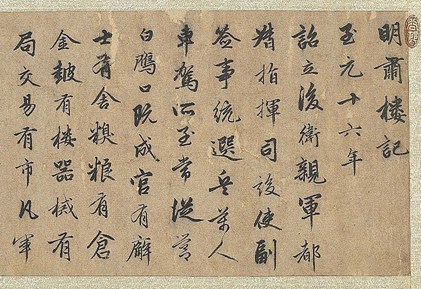 明肅樓記
至元十六年
詔立後衛親軍都
指揮司設使副
簽事統選兵萬人
車駕所至常從營
白鴈口既成官有廨
士有舍糗粮有倉
金皷有楼器械有
局交易有市凡軍